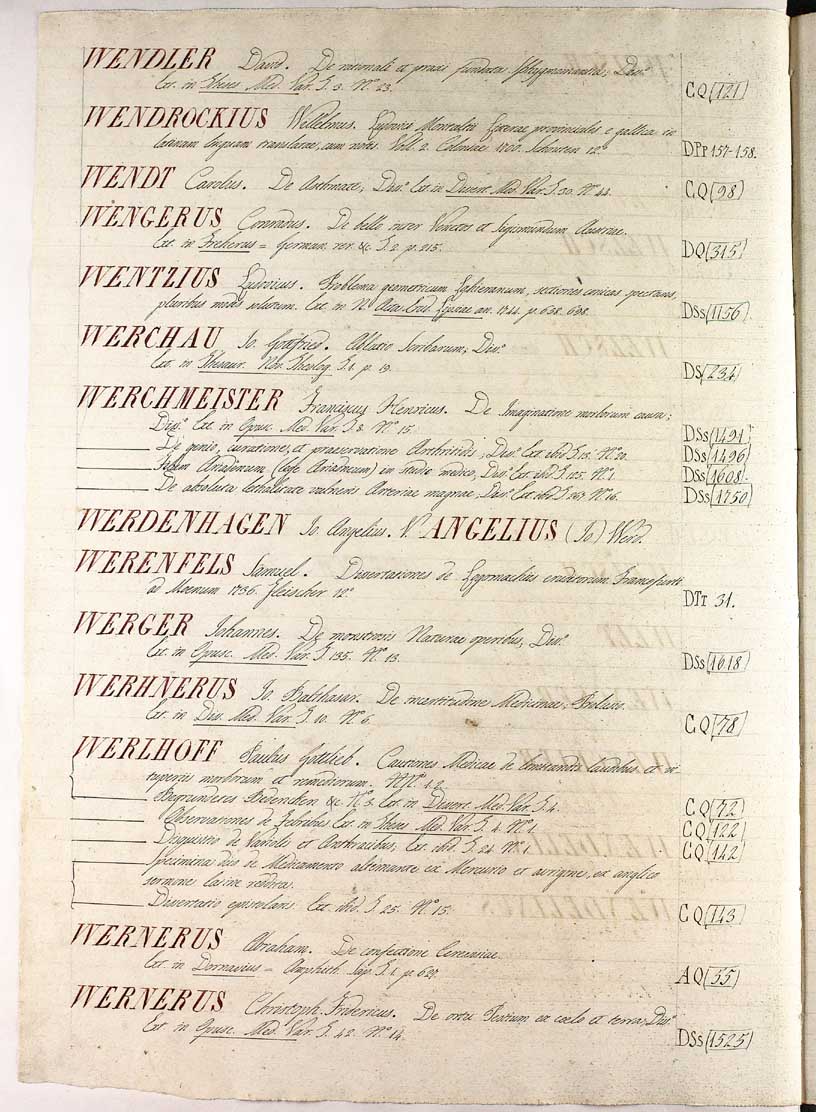 WENDLER David. De rationali et praxi fundata Sphygmomantia, Diss.
Ext. in Theses Med. Var. T. 3. N.º 23. CQ (121)
WENDROCKIUS Willelmus. Ludovici Montaltii Literae provinciales e gallica in
latinam linguam translatae, cum notis. Voll. 2. Coloniae 1700. Schouten 12.º DPp 157-158.
WENDT Carolus. De Asthmate, Diss. Ext. in Dissert. Med. Var. T. 20. N.º 44. CQ (98)
WENGERUS Conradus. De bello inter Venetos et Sigismundum Austriae.
Ext. in Freherus = German. rer. &c. T. 2. p. 215. DQ (315)
WENTZIUS Ludovicus. Problema geometricum, sectiones conicas spectans,
pluribus modis solutum. Ext. in N. Acta Erud. Lipsiae an. 1744. p. 638. 698. DSs (1156)
WERCHAU Jo. Gottfried. Ablatio Sordium, Diss.
Ext. in Thesaur. Nov. Theolog. T. 1. p. 19. DS (234)
WERCHMEISTER Franciscus Henricus. De Imaginatione morborum causa;
Diss. Ext. in Opusc. Med. Var. T. 8. N.º 15. DSs (1491)
De genio, curatione, et praeservatione Arthritidis, Diss. Ext. ibid. T. 13. N.º 20. DSs (1496)
Filum Ariadneum in studio medico, Diss. Ext. ibid. T. 125. N.º 1. DSs (1608)
De absoluta lethalitate vulneris Arteriae magnae, Diss. Ext. ibid. T. 267. N.º 16. DSs (1750)
WERDENHAGEN Jo. Angelius. V. ANGELIUS (Jo.) Werd.
WERENFELS Samuel. Dissertationes de Logomachiis eruditorum. Francofurti
ad Moenum 1736. Fleischer 12.º DTt 31.
WERGER Johannes. De monstrosis Naturae operibus, Diss.
Ext. in Opusc. Med. Var. T. 135. N.º 13. DSs (1618)
WERHNERUS Jo. Balthasar. De incertitudine Medicinae, Prolusio.
Ext. in Diss. Med. Var. T. 10. N.º 6. CQ (78)
WERLHOFF Paulus Gottlieb. Cautiones Medicae de limitandis laudibus et vi-
tuperiis morborum et remediorum. N.N. 1.2.
Begründetes Bedencken &c. N.º 3. Ext. in Dissert. Med. Var. T. 4. CQ (72)
Observationes de Febribus Ext. in Theses Med. Var. T. 4. N.º 1. CQ (122)
Disquisitio de Variolis et Anthracibus, Ext. ibid. T. 24. N.º 1. CQ (142)
Specimina duo de Medicamento alterante ex Mercurio et aurigine, ex anglico
sermone latine reddita.
Dissertatio epistolaris. Ext. ibid. T. 25. N.º 15. CQ (143)
WERNERUS Abraham. De confectione Cerevisiae.
Ext. in Dornavius = Amphith. Sap. T. 1. p. 627. AQ (55)
WERNERUS Christoph. Fridericus. De ortu Pestium ex coelo et terra, Diss.
Ext. in Opusc. Med. Var. T. 42. N.º 14. DSs (1525)